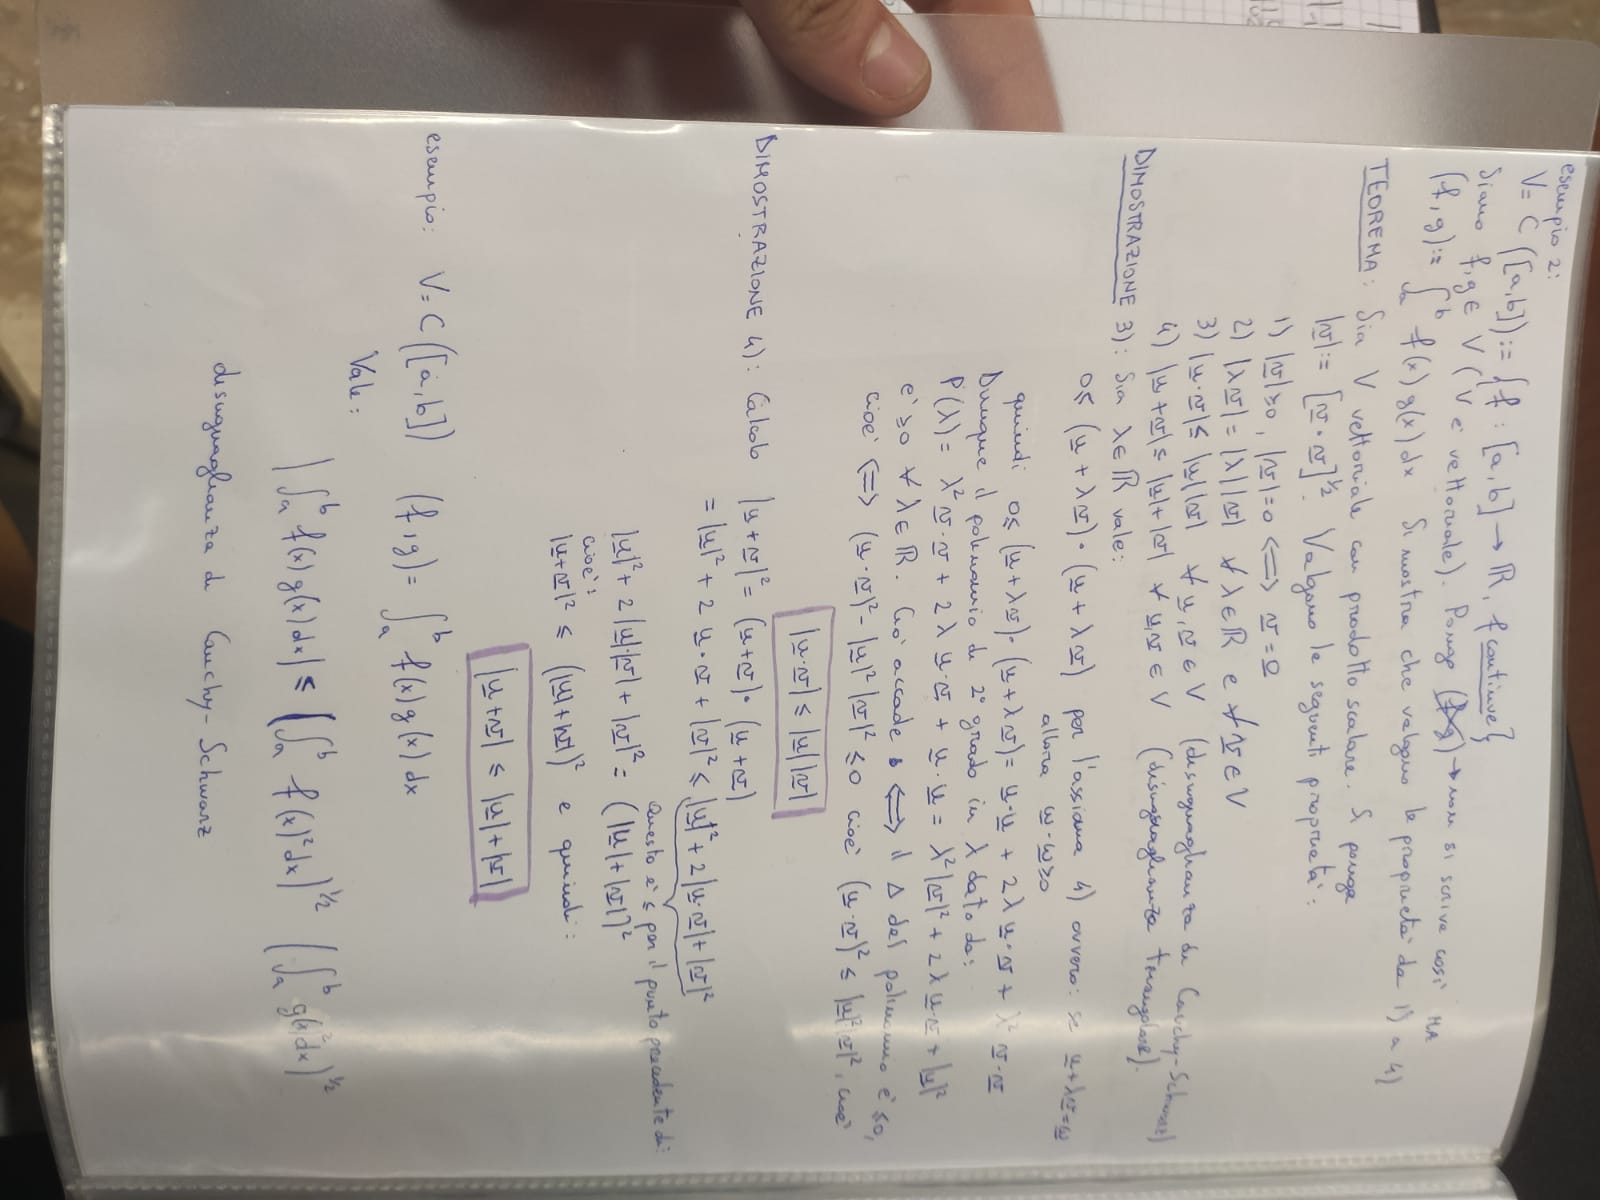 esempio 2:
V = C([a,b]) := {f : [a,b] → ℝ, f continue}
Siano f,g ∈ V (V è vettoriale). Pongo (f·g) → non si scrive così MA
(f,g) := ∫ₐᵇ f(x) g(x) dx Si mostra che valgono le proprietà da 1) a 4)
TEOREMA: Sia V vettoriale con prodotto scalare. Si ponga
|v̲| := [v̲·v̲]^½. Valgono le seguenti proprietà:
1) |v̲| ≥ 0, |v̲| = 0 ⟺ v̲ = 0̲
2) |λv̲| = |λ| |v̲| ∀ λ ∈ ℝ e ∀ v̲ ∈ V
3) |u̲·v̲| ≤ |u̲||v̲| ∀ u̲,v̲ ∈ V (disuguaglianza di Cauchy-Schwarz)
4) |u̲+v̲| ≤ |u̲|+|v̲| ∀ u̲,v̲ ∈ V (disuguaglianza triangolare).
DIMOSTRAZIONE 3): Sia λ ∈ ℝ vale:
0 ≤ (u̲ + λv̲)·(u̲ + λv̲) per l'assioma 4) ovvero: se u̲+λv̲=w̲
allora w̲·w̲ ≥ 0
quindi 0 ≤ (u̲+λv̲)·(u̲+λv̲) = u̲·u̲ + 2λ u̲·v̲ + λ² v̲·v̲
Dunque il polinomio di 2° grado in λ dato da:
P(λ) = λ² v̲·v̲ + 2λ u̲·v̲ + u̲·u̲ = λ²|v̲|² + 2λ u̲·v̲ + |u̲|²
è ≥ 0 ∀ λ ∈ ℝ. Ciò accade ⟺ il Δ del polinomio è ≤ 0,
cioè ⟺ (u̲·v̲)² - |u̲|²|v̲|² ≤ 0 cioè (u̲·v̲)² ≤ |u̲|²|v̲|², cioè
|u̲·v̲| ≤ |u̲||v̲|
DIMOSTRAZIONE 4): Calcolo |u̲+v̲|² = (u̲+v̲)·(u̲+v̲)
= |u̲|² + 2 u̲·v̲ + |v̲|² ≤ |u̲|² + 2|u̲·v̲| + |v̲|²
Questo è ≤ per il punto precedente di:
|u̲|² + 2|u̲|·|v̲| + |v̲|² = (|u̲|+|v̲|)²
cioè:
|u̲+v̲|² ≤ (|u̲|+|v̲|)² e quindi:
|u̲+v̲| ≤ |u̲|+|v̲|
esempio: V = C([a,b]) (f,g) = ∫ₐᵇ f(x) g(x) dx
Vale:
|∫ₐᵇ f(x) g(x) dx| ≤ (∫ₐᵇ f(x)² dx)^½ (∫ₐᵇ g(x)² dx)^½
disuguaglianza di Cauchy-Schwarz